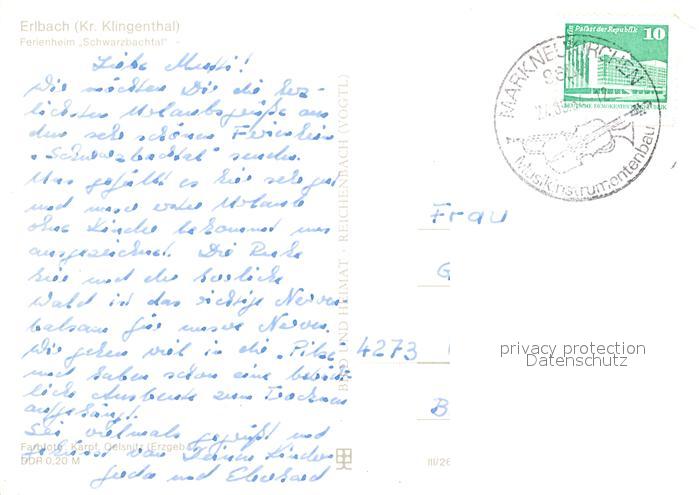 Erlbach (Kr. Klingenthal)
Ferienheim „Schwarzbachtal"
Liebe Mutti!
Wir möchten Dir die herz-
lichsten Urlaubsgrüße aus
dem sehr schönen Ferienheim
„Schwarzbachtal" senden.
Uns gefällt es hier sehr gut
und unser erster Urlaub
ohne Kinder bekommt uns
ausgezeichnet. Die Ruhe
hier und der herrliche
Wald ist das richtige Nerven
balsam für unsere Nerven.
Wir gehen viel in die „Pilze"
und haben schon eine beträcht-
liche Ausbeute zum Trocknen
aufgehängt.
Sei vielmals gegrüßt und
geküsst von Deinen Kindern
Gerda und Eberhard
Farbfoto: Karpf, Oelsnitz (Erzgeb
DDR 0,20 M
BILD UND HEIMAT · REICHENBACH (VOGTL)
III/26
Im Palast der Republik 10
DEUTSCHE DEMOKRATISCHE REPUBLIK
MARKNEUKIRCHEN
Musikinstrumentenbau
Frau
G
4273
B
privacy protection
Datenschutz